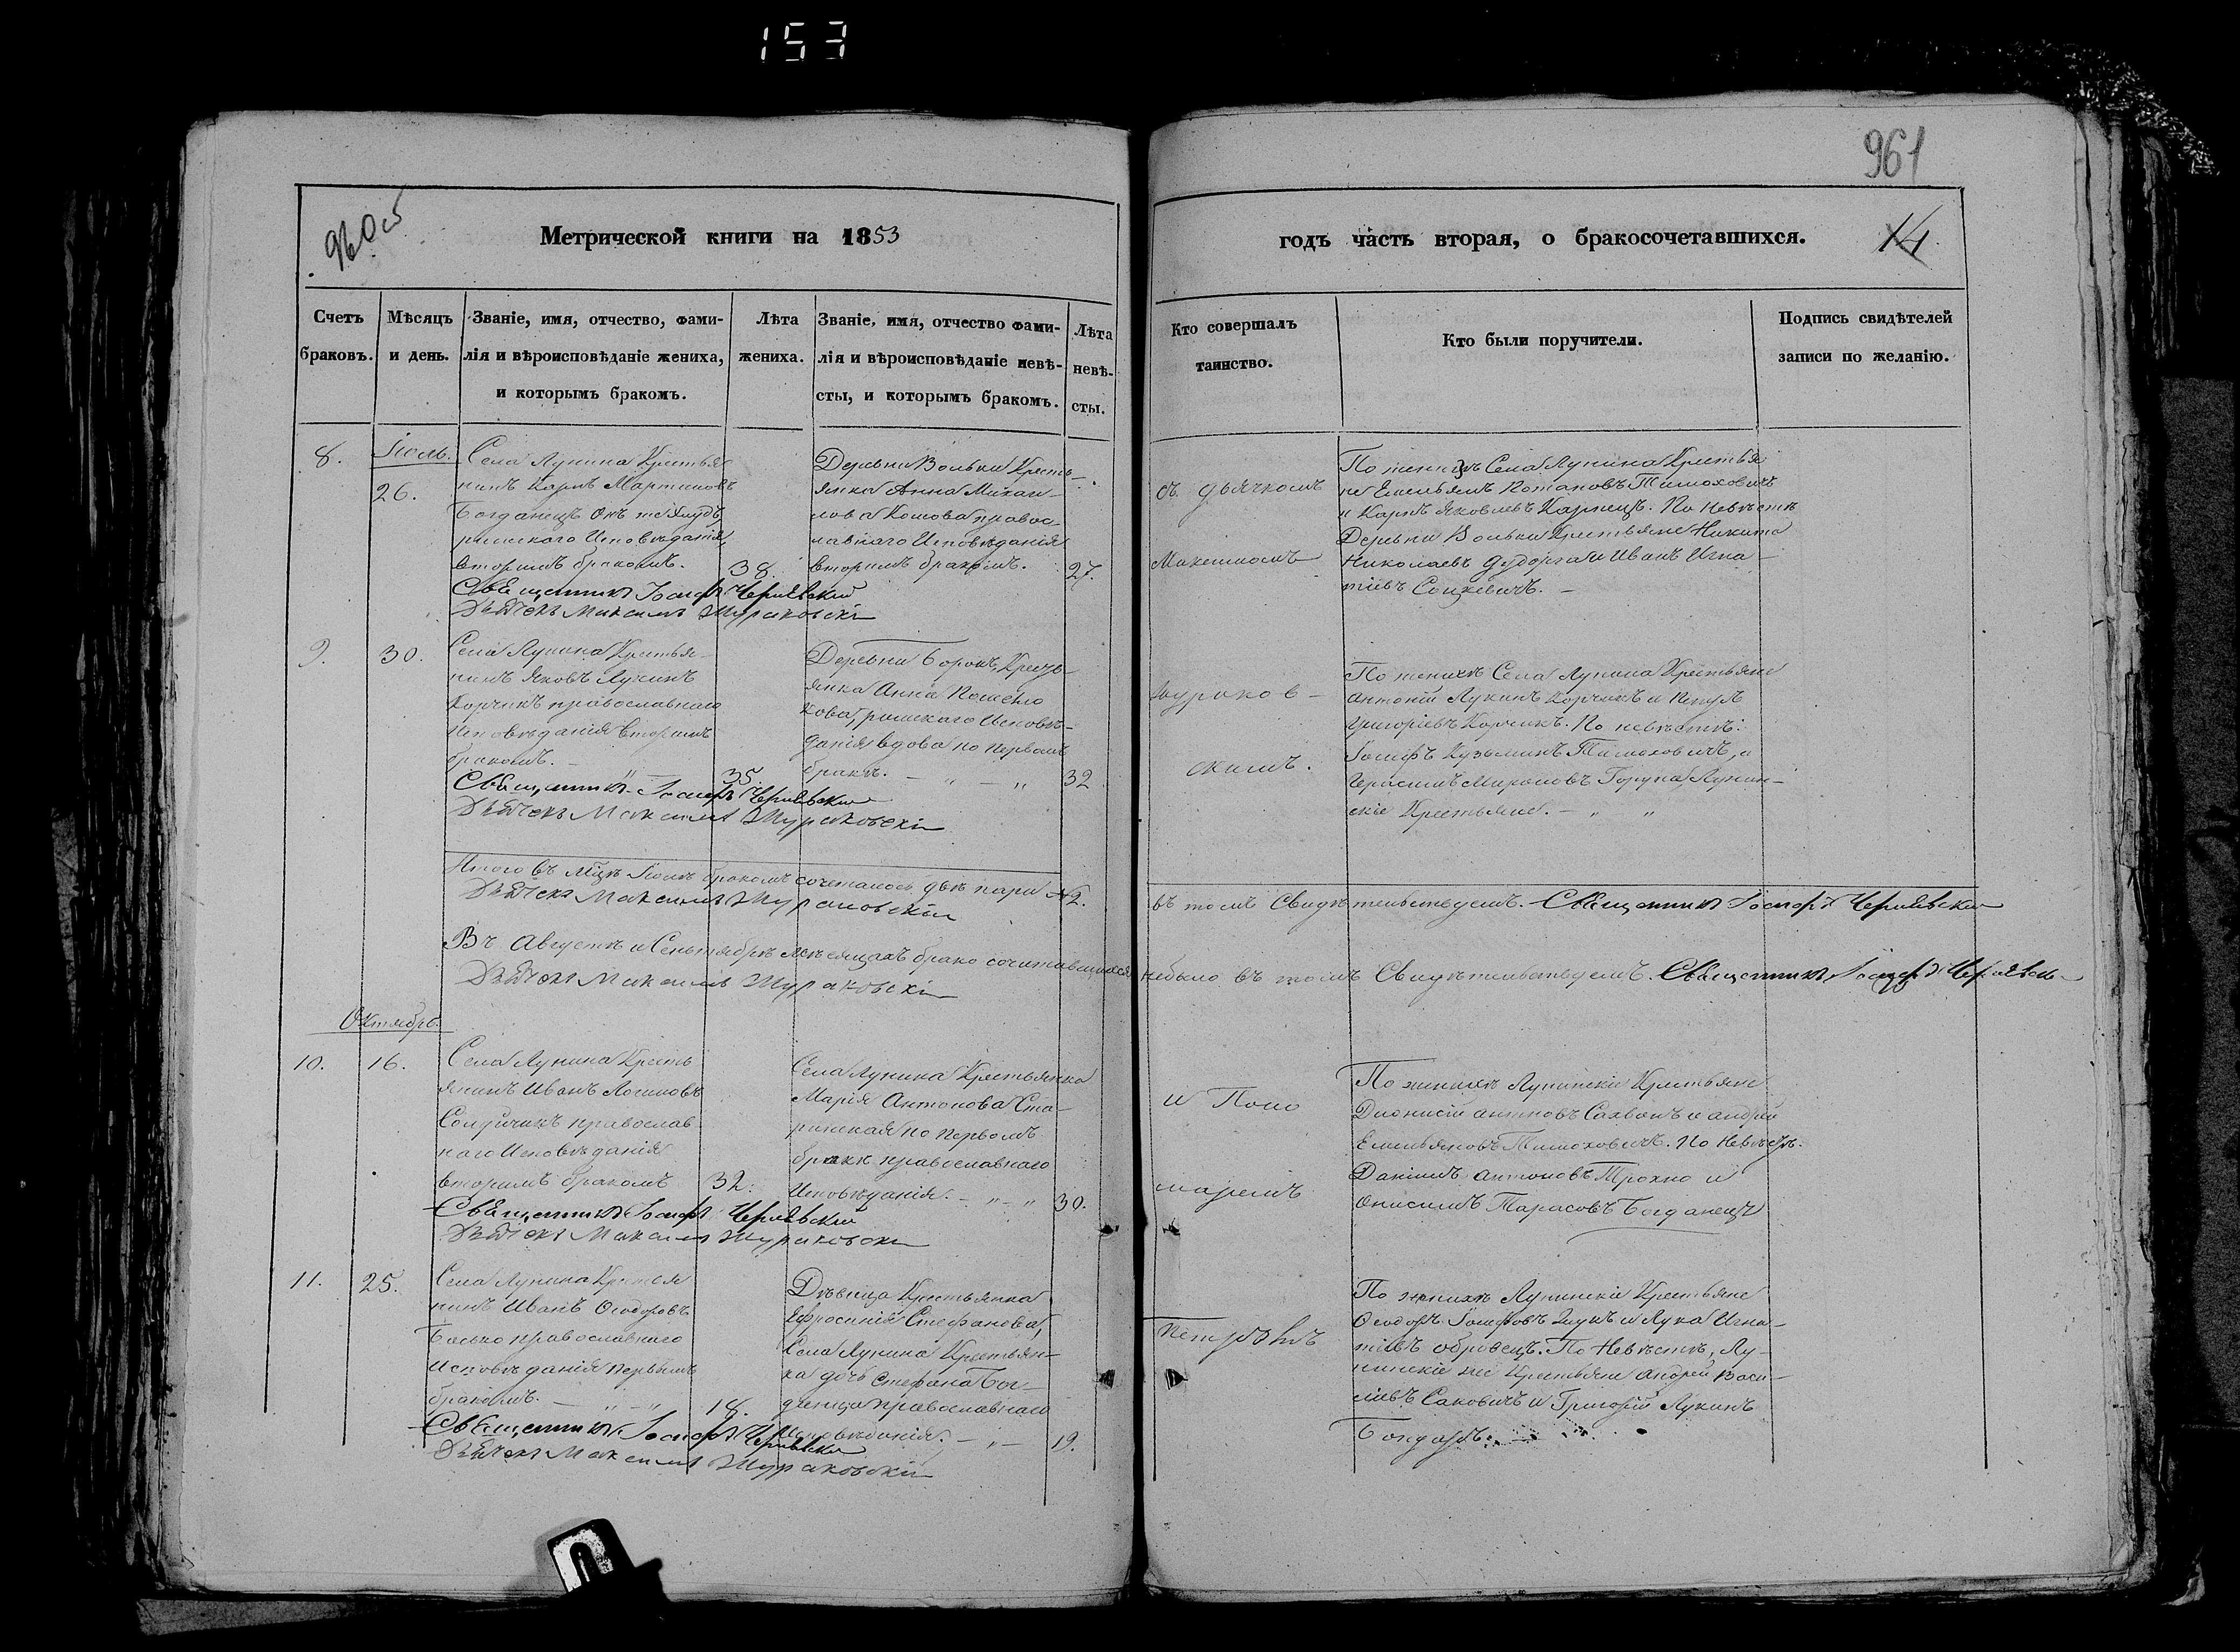 153
960 об
961
Метрической книги на 1853
годъ часть вторая, о бракосочетавшихся.
14
Счетъ браковъ.
Мѣсяцъ и день.
Званіе, имя, отчество, фами-
лія и вѣроисповѣданіе жениха,
и которымъ бракомъ.
Лѣта жениха.
Званіе, имя, отчество фами-
лія и вѣроисповѣданіе невѣ-
сты, и которымъ бракомъ.
Лѣта невѣ-
сты.
Кто совершалъ
таинство.
Кто были поручители.
Подпись свидѣтелей
записи по желанію.
8.
Іюль.
26.
Села Лунина Крестья
нинъ Карпъ Мартиновъ
Богданецъ
римскаго Исповѣданія,
вторымъ бракомъ.
38.
Священникъ Іосифъ Чернявскій
Дьячекъ Максимъ Жураковскій
Деревни Вольки Кресть-
янка Анна Михаи-
лова Комова правос-
лавнаго Исповѣданія
вторымъ бракомъ.
27.
съ дьячкомъ
Максимомъ
По женихѣ Села Лунина Крестья
не Емельянъ Потаповъ Тимоховичъ
и Карпъ Яковлевъ Карпецъ. По Невѣстѣ
Деревни Вольки Крестьяне Никита
Николаевъ и Иванъ Игна-
тіевъ
9.
30.
Села Лунина Крестья-
нинъ Яковъ Лукинъ
Корчикъ православнаго
Исповѣданія вторымъ
бракомъ. –
35.
Священникъ Іосифъ Чернявскій
Дьячекъ Максимъ Жураковскій
Деревни Борокъ Кресть-
янка Анна
кова, римскаго Исповѣ-
данія вдова по первомъ
бракѣ. – " – "
32
Жураков-
скимъ.
По женихѣ Села Лунина Крестьяне
Антоній Лукинъ Корчикъ и Петръ
Григоріевъ Корчикъ. По невѣстѣ:
Іосифъ Кузьминъ Тимоховичъ, и
Герасимъ Мироновъ Горупа Лунин-
скіе Крестьяне. – " "
Итого въ м-цѣ Іюлѣ бракомъ сочеталось двѣ пари №2.
въ томъ Свидѣтельствуемъ. Священникъ Іосифъ Чернявскій
Дьячекъ Максимъ Жураковскій
Въ Августѣ и Сентябрѣ мѣсяцахъ брако сочитавшихся
небыло въ томъ Свидѣтельствуемъ. Священникъ Іосифъ Чернявскі
Дьячекъ Максимъ Жураковскій
Октябрь.
10.
16.
Села Лунина Кресть
янинъ Иванъ
православ-
наго Исповѣданія
вторымъ бракомъ
32.
Священникъ Іосифъ Чернявскій
Дьячекъ Максимъ Жураковскій
Села Лунина Крестьянка
Марія Антонова Ста-
ринская по первомъ
бракѣ православнаго
Исповѣданія. – " – "
30.
и Поно
маремъ
По женихѣ Лунинскіе Крестьяне
Діонисій Сахвонъ и Андрей
Емельяновъ Тимоховичъ. По Невѣстѣ.
Даніилъ Антоновъ Трохно и
Онисимъ Тарасовъ Богданецъ
11.
25.
Села Лунина Крестья
нинъ Иванъ Ѳеодоровъ
Басько православнаго
Исповѣданія первымъ
бракомъ. – " – "
18.
Священникъ Іосифъ Чернявскій
Дьячекъ Максимъ Жураковскій
Дѣвица Крестьянка
Ефросинія Стефанова,
Села Лунина Крестьян-
ка дочь Стефана Бог-
данца православнаго
Исповѣданія. – " –
19.
Петровъ
По женихѣ Лунинскіе Крестьяне
Ѳеодоръ Іосифовъ и Лука Игна-
тіевъ Образецъ. По Невѣстѣ, Лу-
нинскіе же Крестьяне Андрей Васи-
ліевъ Саковичъ и Григорій Лукинъ
Бондарь.